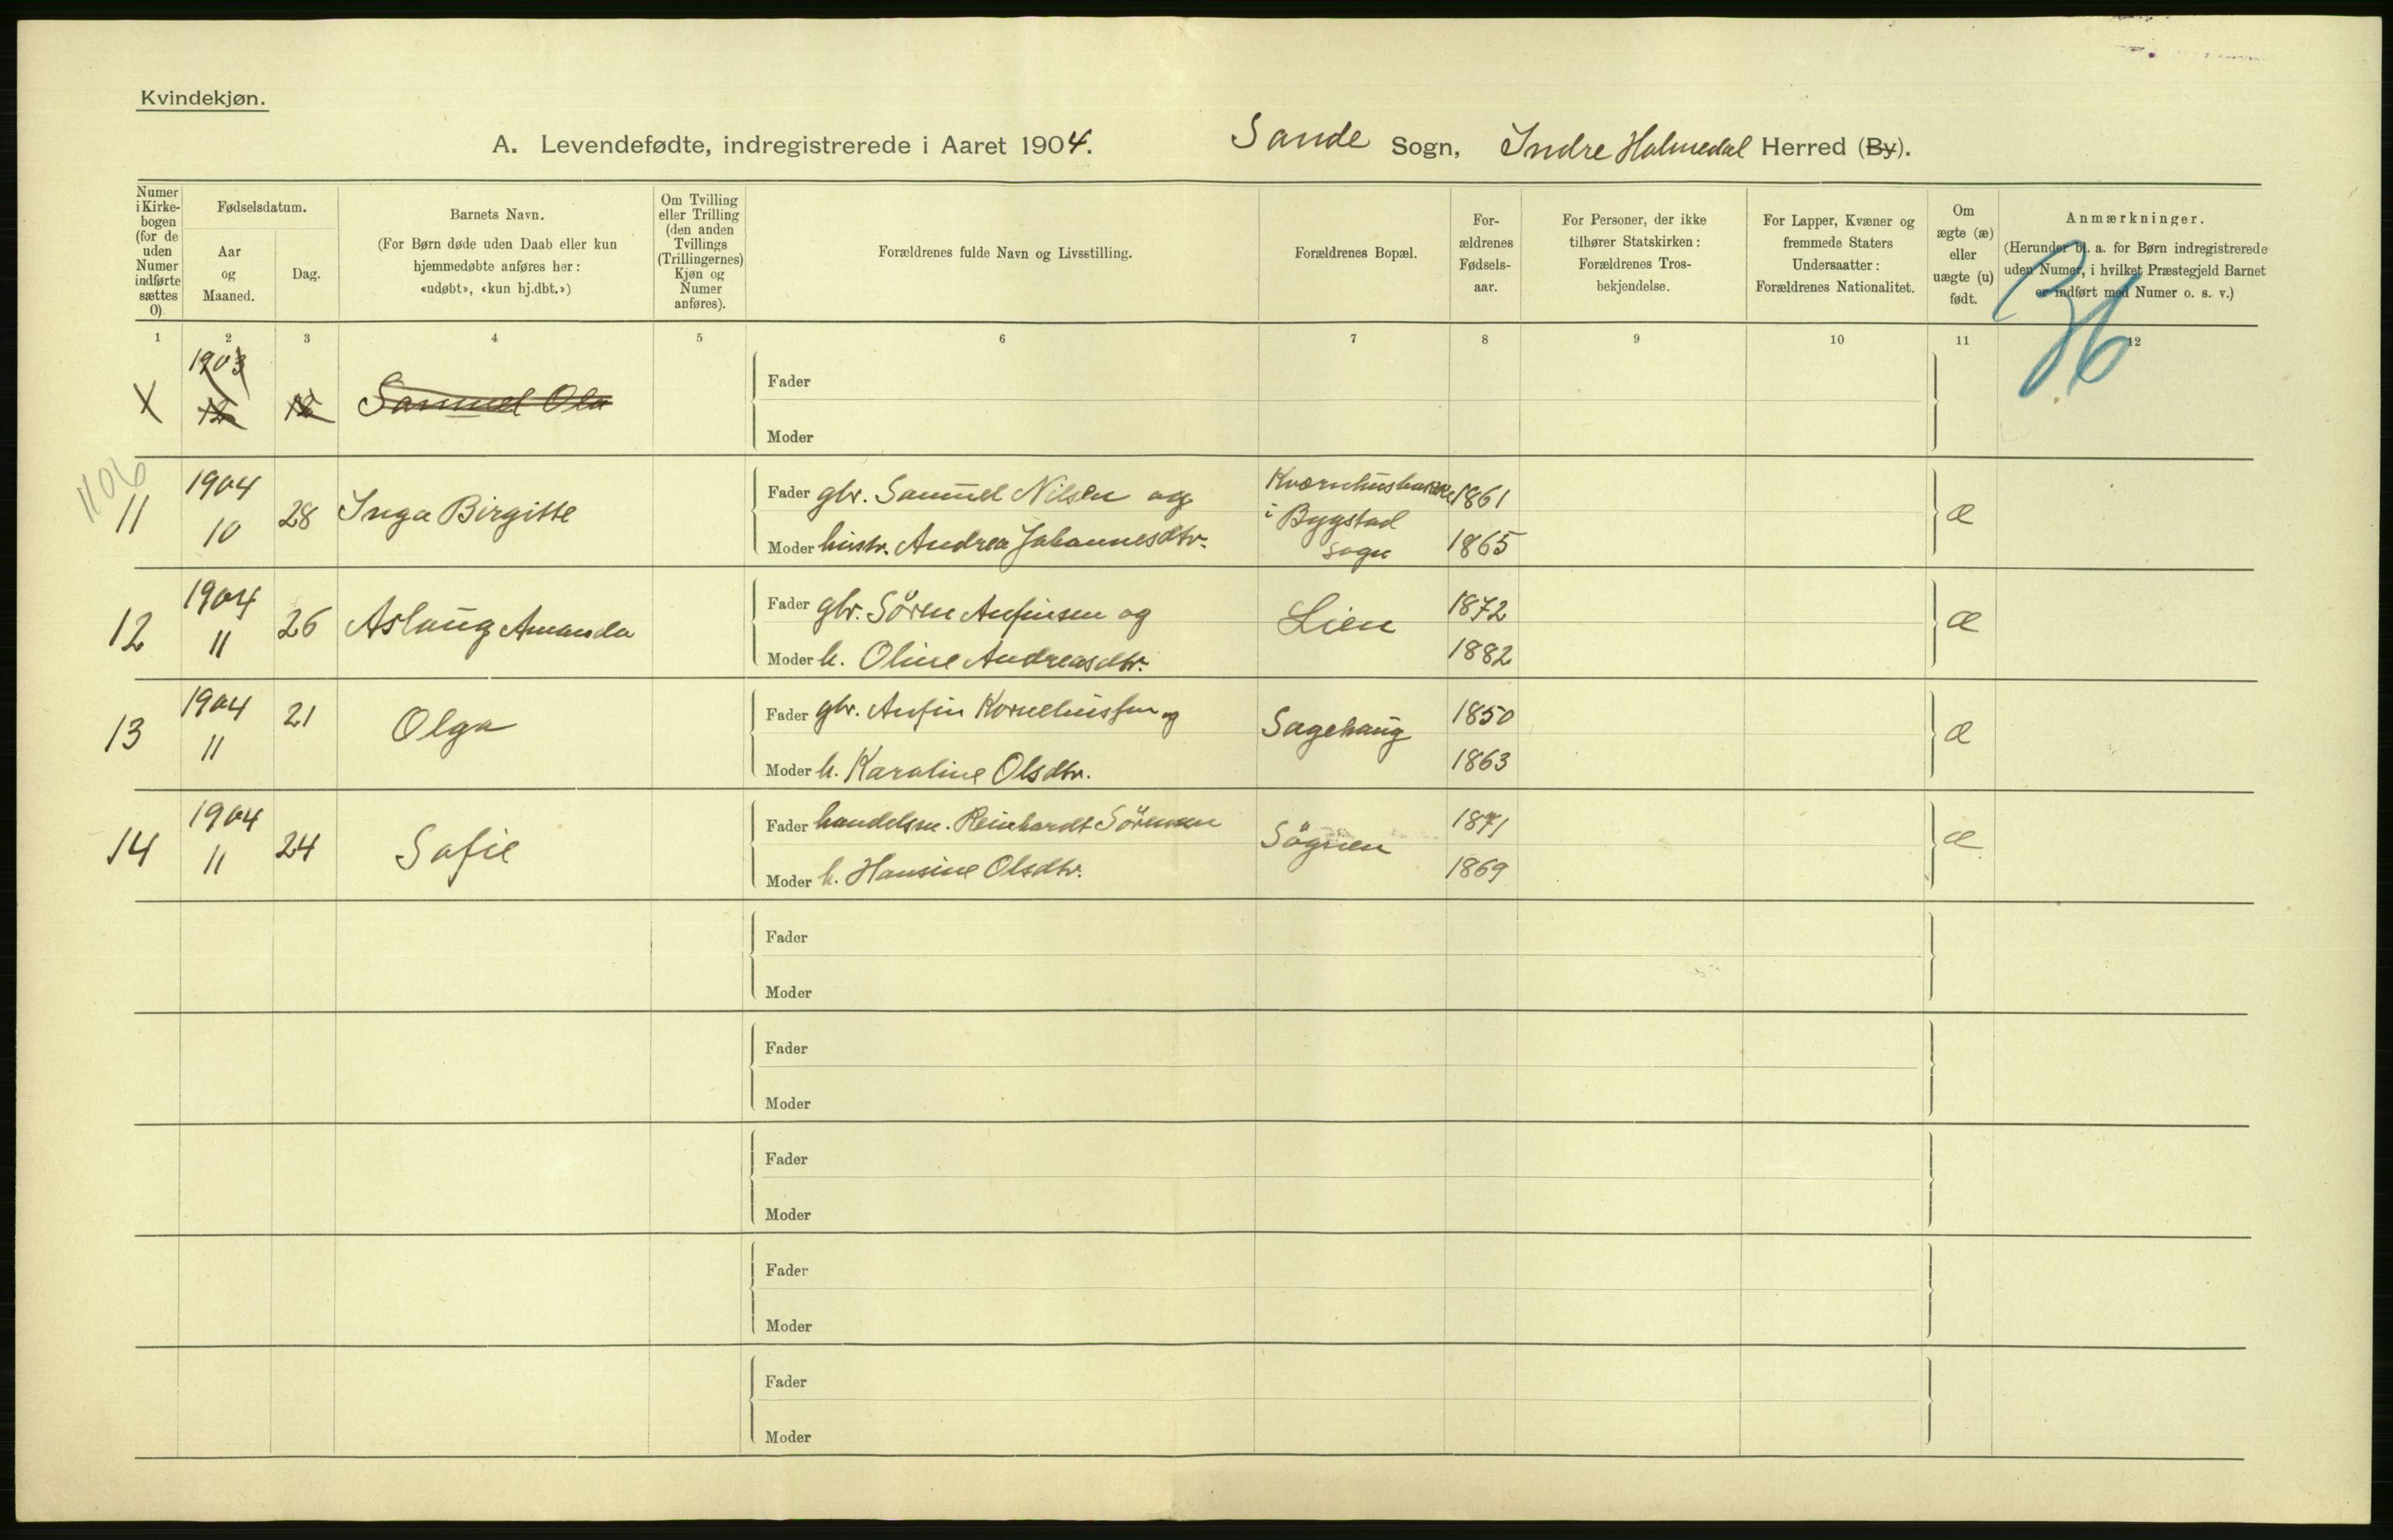 Kvindekjøn.
A. Levendefødte, indregistrerede i Aaret 1904.
Sande Sogn, Indre Holmedal Herred (By).
Numer i Kirke-bogen (for de uden Numer indførte sættes 0).
Fødselsdatum.
Aar og Maaned.
Dag.
Barnets Navn.
(For Børn døde uden Daab eller kun hjemmedøbte anføres her: «udøbt», «kun hj.dbt.»)
Om Tvilling eller Trilling (den anden Tvillings (Trillingernes) Kjøn og Numer anføres).
Forældrenes fulde Navn og Livsstilling.
Forældrenes Bopæl.
For-ældrenes Fødsels-aar.
For Personer, der ikke tilhører Statskirken: Forældrenes Tros-bekjendelse.
For Lapper, Kvæner og fremmede Staters Undersaatter: Forældrenes Nationalitet.
Om ægte (æ) eller uægte (u) født.
Anmærkninger.
(Herunder bl. a. for Børn indregistrerede uden Numer, i hvilket Præstegjeld Barnet er indført med Numer o. s. v.)
36
1 2 3 4 5 6 7 8 9 10 11 12
X 1903 12 Samuel Ola
Fader
Moder
1106
11 1904 10 28 Inga Birgitte
Fader gbr. Samuel Nilsen og
Moder hustr. Andrea Johannesdtr.
Kværnhusbakke
i Bygstad
sogn
1861
1865
æ
12 1904 11 26 Aslaug Amanda
Fader gbr. Søren Anfinsen og
Moder h. Oline Andreasdtr.
Lien
1872
1882
æ
13 1904 11 21 Olga
Fader gbr. Anfin Korneliussen og
Moder h. Karoline Olsdtr.
Sagehaug
1850
1863
æ
14 1904 11 24 Sofie
Fader handelsm. Reinhardt Sørensen
Moder h. Hansine Olsdtr.
Søgnen
1871
1869
æ
Fader
Moder
Fader
Moder
Fader
Moder
Fader
Moder
Fader
Moder